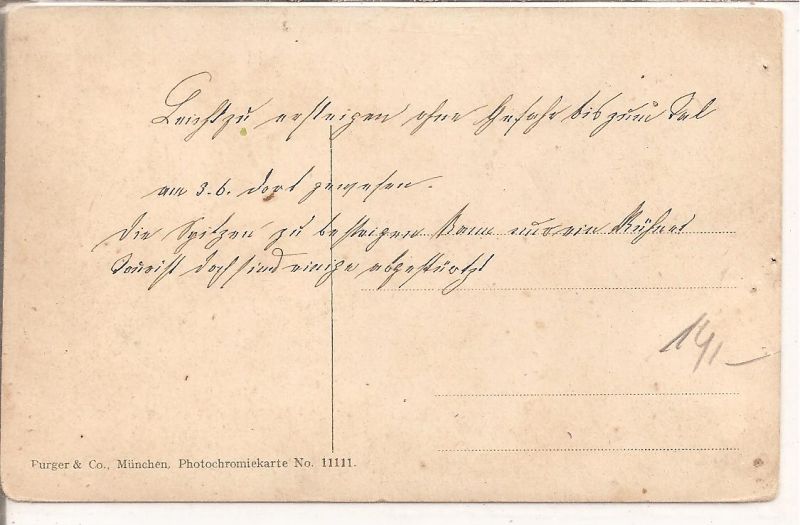 Leicht zu ersteigen ohne Gefahr bis zum Tal
am 3.6. dort gewesen.
Die Spitzen zu besteigen kann nur ein kühner
Tourist doch sind einige abgestürtzt
Purger & Co., München, Photochromiekarte No. 11111.